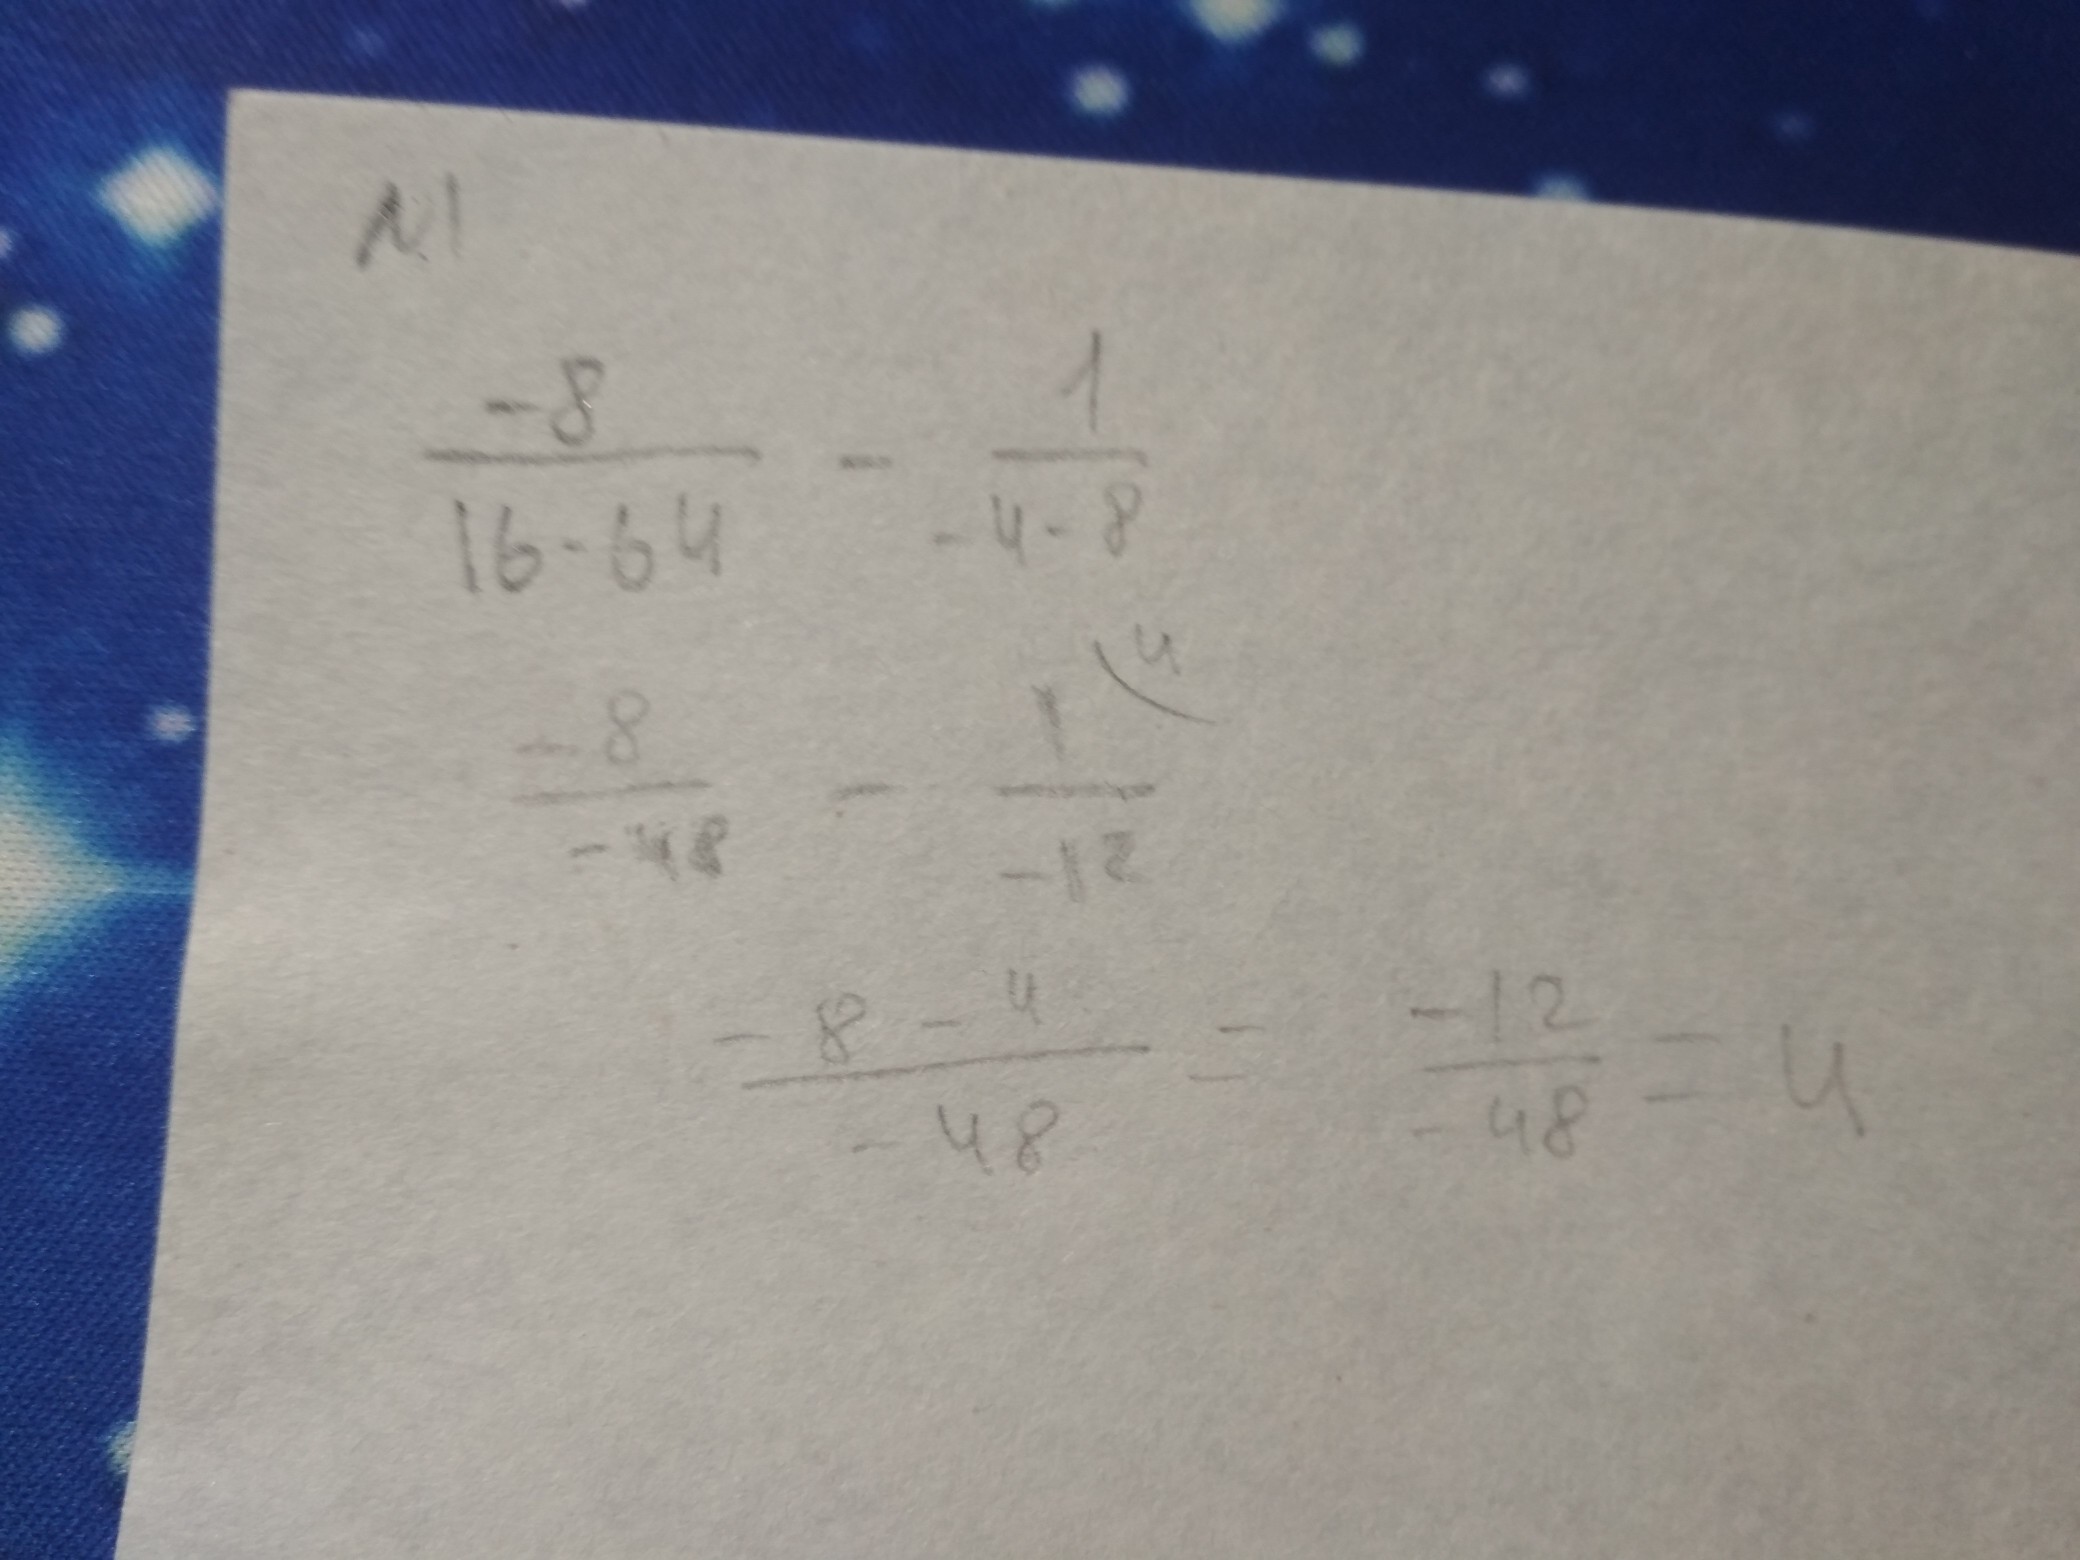 №1
-8/(16-64) - 1/(-4-8)
4
-8/-48 - 1/-12
(-8-4)/-48 = -12/-48 = 4